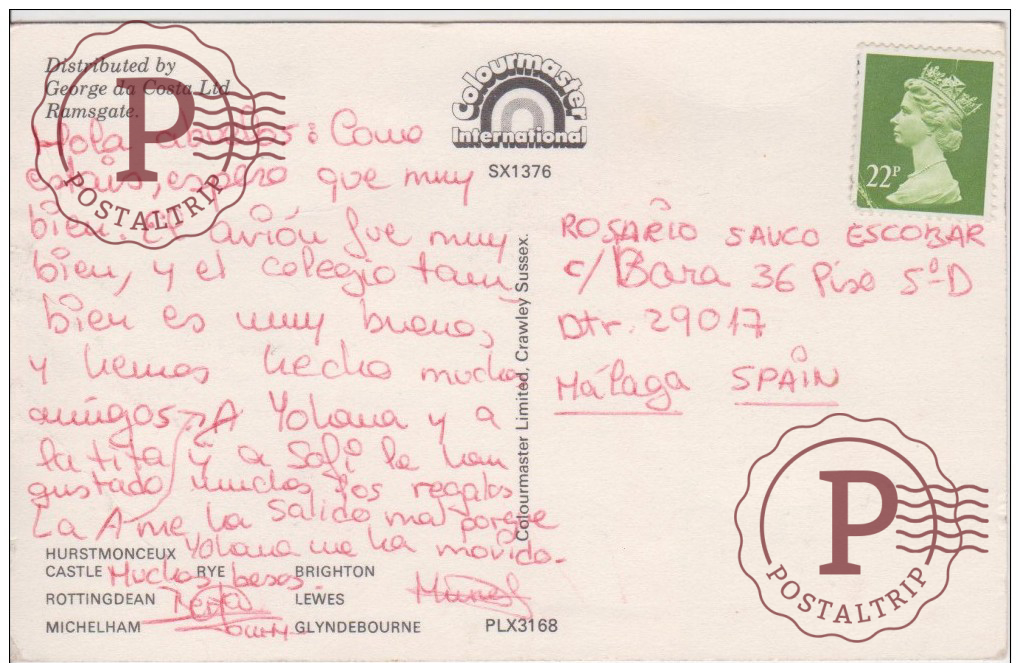 Distributed by
George da Costa Ltd
Ramsgate.
Colourmaster
International
SX1376
22P
POSTALTRIP
Hola abuelos: Como
estais, espero que muy
bien. El avión fue muy
bien, y el colegio tam
bien es muy bueno,
y hemos hecho mucho
amigos. A Yohana y a
la tita y a Sofi le han
gustado muchos los regalos
La A me ha salido mal porque
Yohana me ha movido.
Muchos besos
Colourmaster Limited, Crawley Sussex.
ROSARIO SAUCO ESCOBAR
C/ Bara 36 Piso 5º D
Dtr. 29017
Málaga SPAIN
HURSTMONCEUX
CASTLE RYE BRIGHTON
ROTTINGDEAN LEWES
MICHELHAM GLYNDEBOURNE
PLX3168
P
POSTALTRIP